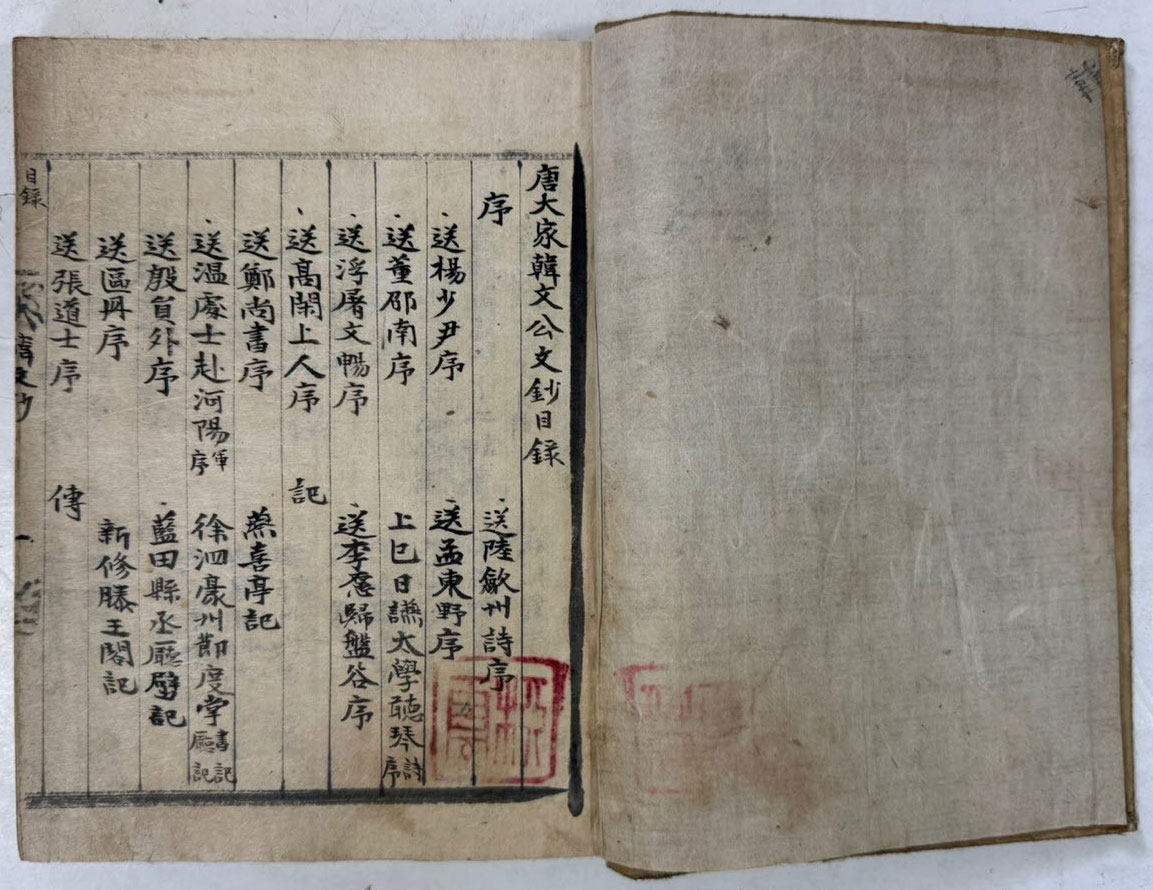 唐大家韓文公文鈔目錄
序
送陸歙州詩序
送楊少尹序
送孟東野序
送董邵南序
上巳日讌太學聽琴詩序
送浮屠文暢序
送李愿歸盤谷序
送高閑上人序
記
送鄭尚書序
燕喜亭記
送溫處士赴河陽軍序
徐泗豪州節度掌書記廳記
送殷員外序
藍田縣丞廳壁記
送區冊序
新修滕王閣記
送張道士序
傳
目錄
韓文鈔